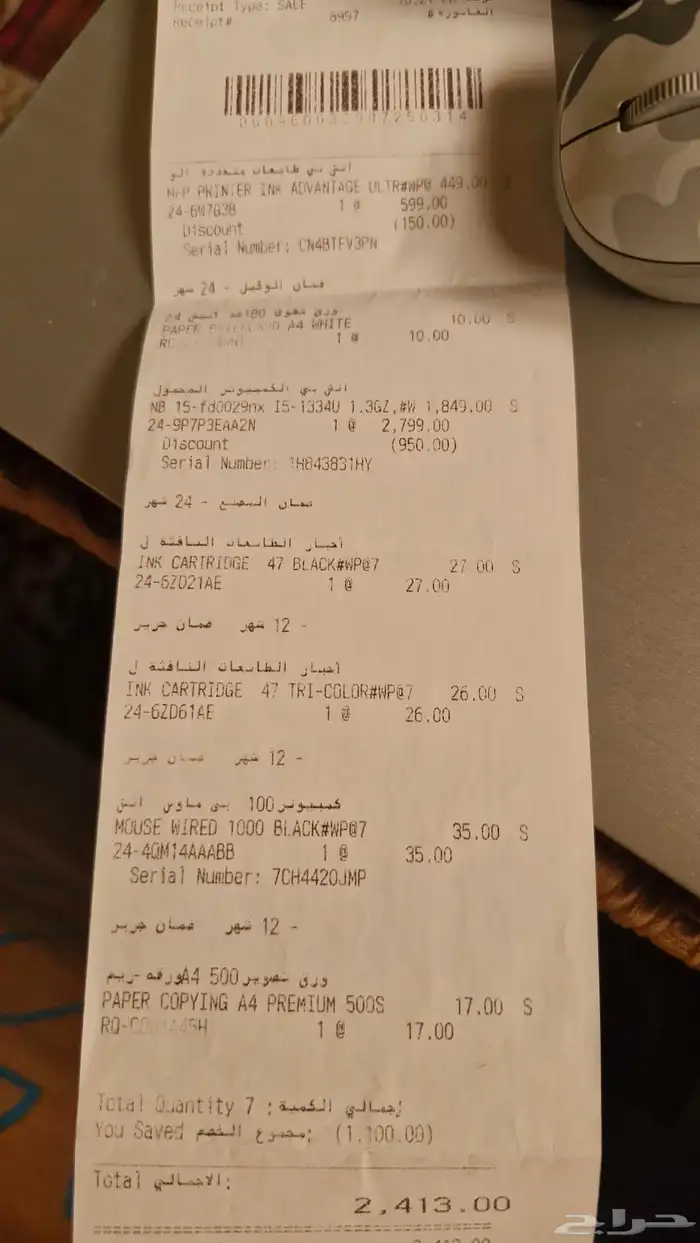 Receipt Type: SALE
Receipt# 8997 الفاتورة #
اتش بي طابعات متعددة الو
M-P PRINTER INK ADVANTAGE ULTR#WP@ 449.00 S
24-6W7G3B 1 @ 599.00
Discount (150.00)
Serial Number: CN4BTFV3PN
ضمان الوكيل - 24 شهر
ورق مقوى
PAPER A4 WHITE 10.00 S
1 @ 10.00
اتش بي الكمبيوتر المحمول
NB 15-fd0029nx I5-1334U 1.3GZ,#W 1,849.00 S
24-9P7P3EAA2N 1 @ 2,799.00
Discount (950.00)
Serial Number: 1H843831HY
ضمان المصنع - 24 شهر
أحبار الطابعات النافثة ل
INK CARTRIDGE 47 BLACK#WP@7 27.00 S
24-6ZD21AE 1 @ 27.00
ضمان جرير 12 شهر -
أحبار الطابعات النافثة ل
INK CARTRIDGE 47 TRI-COLOR#WP@7 26.00 S
24-6ZD61AE 1 @ 26.00
ضمان جرير 12 شهر -
كمبيوتر100 بي ماوس اتش
MOUSE WIRED 1000 BLACK#WP@7 35.00 S
24-4QM14AAABB 1 @ 35.00
Serial Number: 7CH4420JMP
ضمان جرير 12 شهر -
ورق تصوير A4 500ورقه-ريم
PAPER COPYING A4 PREMIUM 500S 17.00 S
1 @ 17.00
Total Quantity 7 : إجمالي الكمية
You Saved مجموع الخصم: (1,100.00)
Total الاجمالي:
2,413.00
حراج